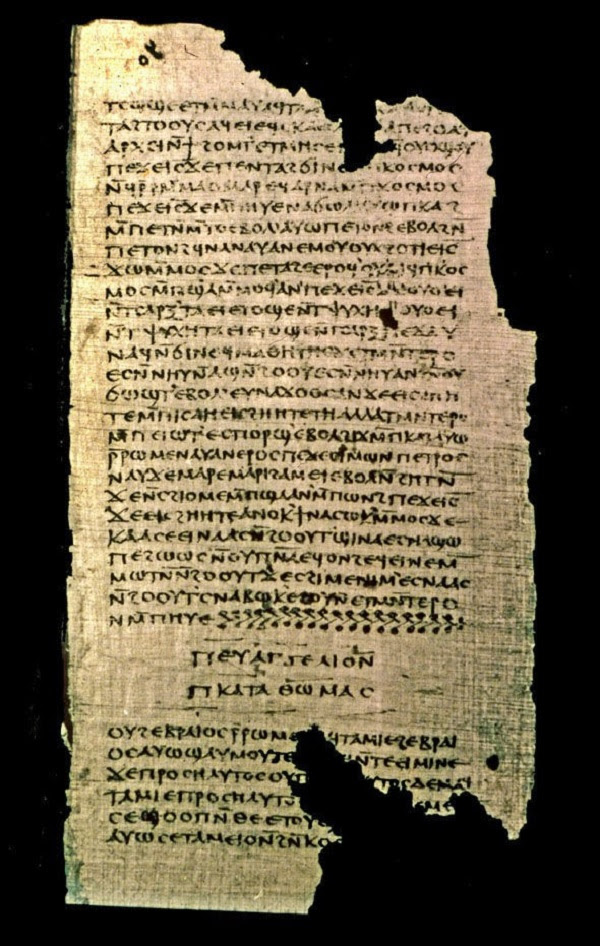 ⲧⲥⲱϣⲉ ⲉⲧⲙ̄ⲙⲁⲩ ⲁϥⲧⲁ
ⲧⲁϩⲧⲟⲟⲩⲥ ⲁϥⲉⲓ ⲉϥⲥⲕⲁⲉⲓ ⲁⲡⲉϩⲟ ⲁϥ
ⲁⲣⲭⲉⲓ ⲛ̄ϯ ϩⲟⲙⲧ ⲉⲧⲙⲏⲥⲉ ϥⲟⲩⲟϣⲟⲩ
ⲡⲉϫⲉ ⲓ̅ⲥ̅ ϫⲉ ⲡⲉⲛⲧⲁϩϭⲓⲛⲉ ⲕⲟⲥⲙⲟⲥ
ⲛ̄ϥⲣ̄ ⲣⲙ̄ⲙⲁⲟ ⲙⲁⲣⲉϥⲁⲣⲛⲁ ⲙ̄ⲡⲕⲟⲥⲙⲟⲥ
ⲡⲉϫⲉ ⲓ̅ⲥ̅ ϫⲉ ⲙ̄ⲡⲏⲩⲉ ⲛⲁϭⲱⲗ ⲁⲩⲱ ⲡⲕⲁϩ
ⲙ̄ⲡⲉⲧⲛ̄ⲙ̄ⲧⲟ ⲉⲃⲟⲗ ⲁⲩⲱ ⲡⲉⲧⲟⲛϩ ⲉⲃⲟⲗ ϩⲛ̄
ⲡⲉⲧⲟⲛϩ ϥⲛⲁⲛⲁⲩ ⲁⲛ ⲉⲙⲟⲩ ⲟⲩⲭ ϩⲟⲧⲓ ⲉⲓ̅ⲥ̅
ϫⲱ ⲙ̄ⲙⲟⲥ ϫⲉ ⲡⲉⲧⲁϩⲉ ⲉⲣⲟϥ ⲟⲩⲁⲁϥ ⲡⲕⲟⲥ
ⲙⲟⲥ ⲙ̄ⲡϣⲁ ⲙ̄ⲙⲟϥ ⲁⲛ ⲡⲉϫⲉ ⲓ̅ⲥ̅ ϫⲉ ⲟⲩⲟⲉⲓ
ⲛ̄ⲧⲥⲁⲣⲝ ⲧⲁⲉⲓ ⲉⲧⲟϣⲉ ⲛ̄ⲧⲯⲩⲭⲏ ⲟⲩⲟⲉⲓ
ⲛ̄ⲧⲯⲩⲭⲏ ⲧⲁⲉⲓ ⲉⲧⲟϣⲉ ⲛ̄ⲧⲥⲁⲣⲝ ⲡⲉϫⲁⲩ
ⲛⲁϥ ⲛ̄ϭⲓ ⲛⲉϥⲙⲁⲑⲏⲧⲏⲥ ϫⲉ ⲧⲙⲛ̄ⲧⲉⲣⲟ
ⲉⲥⲛ̄ⲛⲏⲩ ⲛ̄ⲁϣ ⲛ̄ϩⲟⲟⲩ ⲉⲥⲛ̄ⲛⲏⲩ ⲁⲛ ϩⲛ̄ ⲟⲩ
ϭⲱϣⲧ ⲉⲃⲟⲗ ⲉⲩⲛⲁϫⲟⲟⲥ ⲁⲛ ϫⲉ ⲉⲓⲥϩⲏⲏ
ⲧⲉ ⲙ̄ⲡⲓⲥⲁ ⲏ ⲉⲓⲥϩⲏⲏⲧⲉ ⲧⲏ ⲁⲗⲗⲁ ⲧⲙⲛ̄ⲧⲉⲣⲟ
ⲙ̄ⲡⲉⲓⲱⲧ ⲉⲥⲡⲟⲣϣ ⲉⲃⲟⲗ ϩⲓϫⲙ̄ ⲡⲕⲁϩ ⲁⲩⲱ
ⲣ̄ⲣⲱⲙⲉ ⲛⲁⲩ ⲁⲛ ⲉⲣⲟⲥ ⲡⲉϫⲉ ⲥⲓⲙⲱⲛ ⲡⲉⲧⲣⲟⲥ
ⲛⲁⲩ ϫⲉ ⲙⲁⲣⲉ ⲙⲁⲣⲓϩⲁⲙ ⲉⲓ ⲉⲃⲟⲗ ⲛ̄ϩⲏⲧⲛ̄
ϫⲉ ⲛ̄ⲥϩⲓⲟⲙⲉ ⲙ̄ⲡϣⲁ ⲁⲛ ⲙ̄ⲡⲱⲛϩ ⲡⲉϫⲉ ⲓ̅ⲥ̅
ϫⲉ ⲉⲓⲥϩⲏⲏⲧⲉ ⲁⲛⲟⲕ ϯⲛⲁⲥⲱⲕ ⲙ̄ⲙⲟⲥ ϫⲉ
ⲕⲁⲁⲥ ⲉⲉⲓⲛⲁⲁⲥ ⲛ̄ϩⲟⲟⲩⲧ ϣⲓⲛⲁ ⲉⲥⲛⲁϣⲱ
ⲡⲉ ϩⲱⲱⲥ ⲛ̄ⲟⲩⲡⲛ̅ⲁ̅ ⲉϥⲟⲛϩ ⲉϥⲉⲓⲛⲉ ⲙ̄
ⲙⲱⲧⲛ̄ ⲛ̄ϩⲟⲟⲩⲧ ϫⲉ ⲥϩⲓⲙⲉ ⲛⲓⲙ ⲉⲥⲛⲁⲁⲥ
ⲛ̄ϩⲟⲟⲩⲧ ⲥⲛⲁⲃⲱⲕ ⲉϩⲟⲩⲛ ⲉⲧⲙⲛ̄ⲧⲉⲣⲟ
ⲛⲙ̄ⲡⲏⲩⲉ
ⲡⲉⲩⲁⲅⲅⲉⲗⲓⲟⲛ
ⲡⲕⲁⲧⲁ ⲑⲱⲙⲁⲥ
ⲟⲩϩⲉⲃⲣⲁⲓⲟⲥ ⲣ̄ⲣⲱⲙⲉ ϣⲁϥⲧⲁⲙⲓⲉ ϩⲉⲃⲣⲁⲓ
ⲟⲥ ⲁⲩⲱ ϣⲁⲩⲙⲟⲩⲧⲉ ⲛⲧⲉⲉⲓⲙⲓⲛⲉ
ϫⲉ ⲡⲣⲟⲥⲏⲗⲩⲧⲟⲥ ⲟⲩⲡ ⲧⲟⲥ ⲇⲉ ⲙⲁϥ
ⲧⲁⲙⲓⲉ ⲡⲣⲟⲥⲏⲗⲩⲧⲟⲥ ⲙⲉ
ⲥⲉϣⲟⲟⲡ ⲛ̄ⲑⲉ ⲉⲧⲟⲩ
ⲁⲩⲱ ⲥⲉⲧⲁⲙⲉⲓⲟ ⲛ̄ϩⲛ̄ⲕⲟ